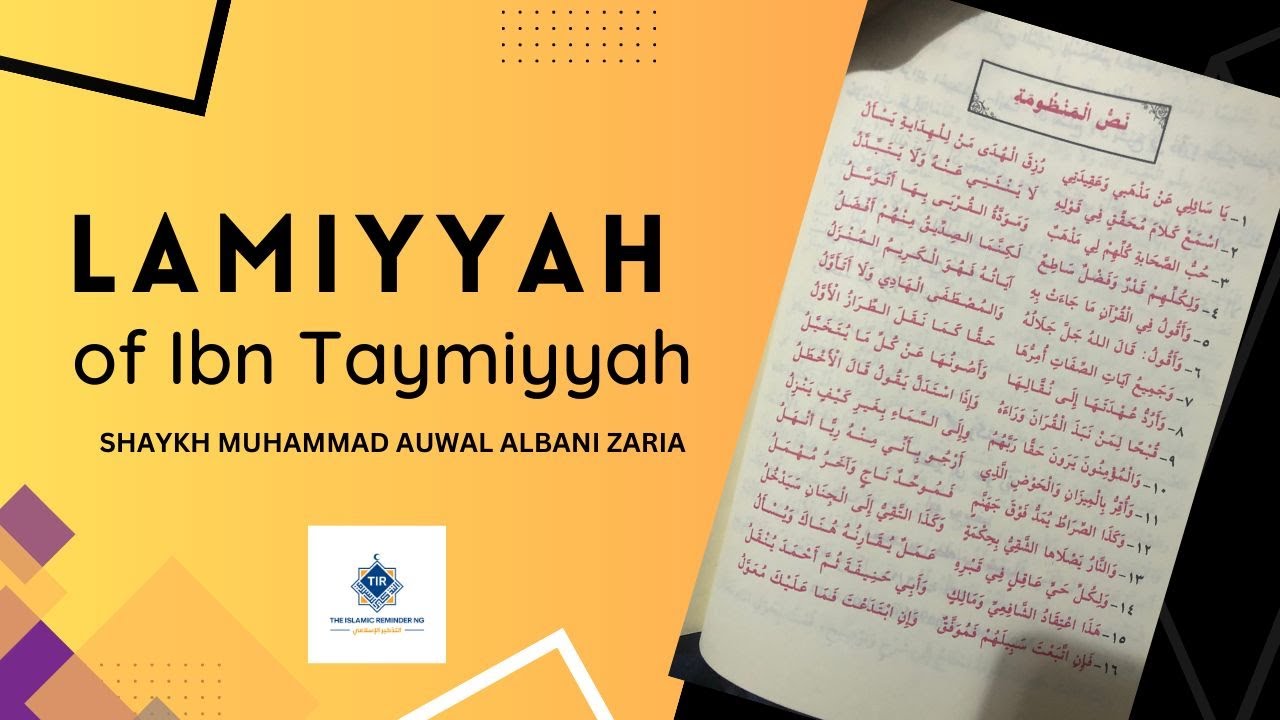 LAMIYYAH
of Ibn Taymiyyah
SHAYKH MUHAMMAD AUWAL ALBANI ZARIA
TIR
THE ISLAMIC REMINDER NG
التذكير الإسلامي
نَصُّ الْمَنْظُومَةِ
١- يَا سَائِلِي عَنْ مَذْهَبِي وَعَقِيدَتِي رُزِقَ الْهُدَى مَنْ لِلْهِدَايَةِ يَسْأَلُ
٢- اسْمَعْ كَلَامَ مُحَقِّقٍ فِي قَوْلِهِ لَا يَنْثَنِي عَنْهُ وَلَا يَتَبَدَّلُ
٣- حُبُّ الصَّحَابَةِ كُلِّهِمْ لِي مَذْهَبٌ وَمَوَدَّةُ الْقُرْبَى بِهَا أَتَوَسَّلُ
٤- وَلِكُلِّهِمْ قَدْرٌ وَفَضْلٌ سَاطِعٌ لَكِنَّمَا الصِّدِّيقُ مِنْهُمْ أَفْضَلُ
٥- وَأَقُولُ فِي الْقُرْآنِ مَا جَاءَتْ بِهِ آيَاتُهُ فَهُوَ الْكَرِيمُ الْمُنْزَلُ
٦- وَأَقُولُ: قَالَ اللهُ جَلَّ جَلَالُهُ وَالْمُصْطَفَى الْهَادِي وَلَا أَتَأَوَّلُ
٧- وَجَمِيعُ آيَاتِ الصِّفَاتِ أُمِرُّهَا حَقًّا كَمَا نَقَلَ الطِّرَازُ الْأَوَّلُ
٨- وَأَرُدُّ عُهْدَتَهَا إِلَى نُقَّالِهَا وَأَصُونُهَا عَنْ كُلِّ مَا يُتَخَيَّلُ
٩- قُبْحًا لِمَنْ نَبَذَ الْقُرَانَ وَرَاءَهُ وَإِذَا اسْتَدَلَّ يَقُولُ قَالَ الْأَخْطَلُ
١٠- وَالْمُؤْمِنُونَ يَرَوْنَ حَقًّا رَبَّهُمْ وَإِلَى السَّمَاءِ بِغَيْرِ كَيْفٍ يَنْزِلُ
١١- وَأُقِرُّ بِالْمِيزَانِ وَالْحَوْضِ الَّذِي أَرْجُو بِأَنِّي مِنْهُ رِيًّا أَنْهَلُ
١٢- وَكَذَا الصِّرَاطُ يُمَدُّ فَوْقَ جَهَنَّمٍ فَمُوَحِّدٌ نَاجٍ وَآخَرُ مُهْمَلُ
١٣- وَالنَّارُ يَصْلَاهَا الشَّقِيُّ بِحِكْمَةٍ وَكَذَا التَّقِيُّ إِلَى الْجِنَانِ سَيَدْخُلُ
١٤- وَلِكُلِّ حَيٍّ عَاقِلٍ فِي قَبْرِهِ عَمَلٌ يُقَارِنُهُ هُنَاكَ وَيُسْأَلُ
١٥- هَذَا اعْتِقَادُ الشَّافِعِيِّ وَمَالِكٍ وَأَبِي حَنِيفَةَ ثُمَّ أَحْمَدَ يُنْقَلُ
١٦- فَإِنِ اتَّبَعْتَ سَبِيلَهُمْ فَمُوَفَّقٌ وَإِنِ ابْتَدَعْتَ فَمَا عَلَيْكَ مُعَوَّلُ